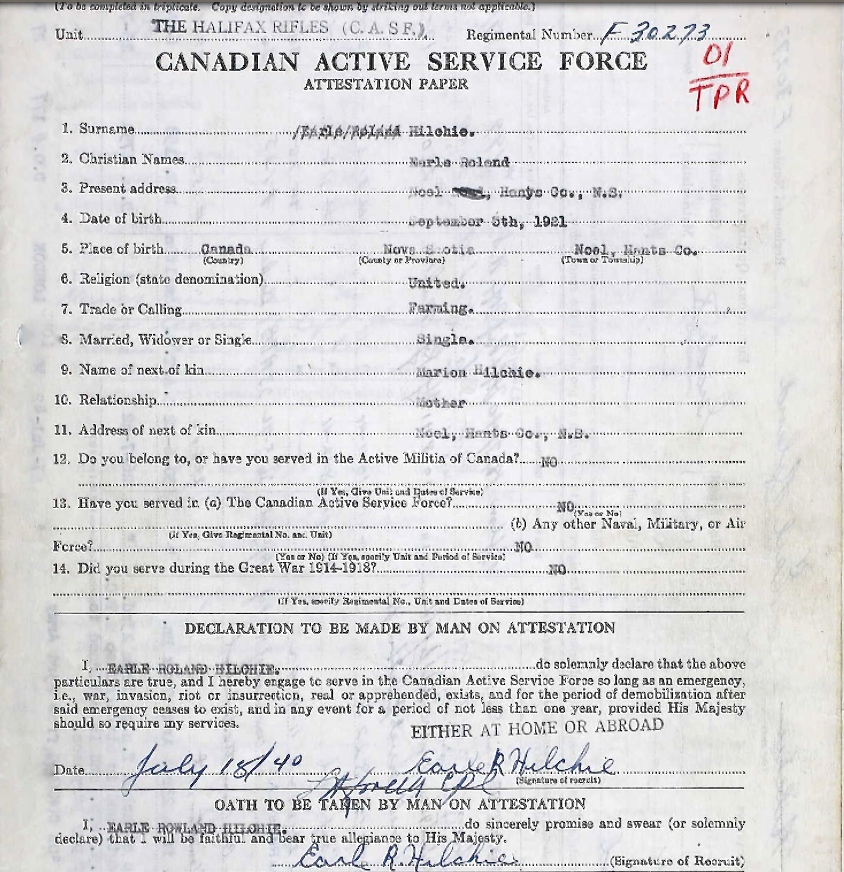 (To be completed in triplicate. Copy designation to be shown by striking out terms not applicable.)
Unit THE HALIFAX RIFLES (C.A.S.F.) Regimental Number F 30273
CANADIAN ACTIVE SERVICE FORCE
ATTESTATION PAPER
01
TPR
1. Surname Hilchie.
2. Christian Names Earle Roland
3. Present address Noel, Hants Co., N.S.
4. Date of birth September 5th, 1921
5. Place of birth Canada Nova Scotia Noel, Hants Co.
(Country) (County or Province) (Town or Township)
6. Religion (state denomination) United.
7. Trade or Calling Farming.
8. Married, Widower or Single Single.
9. Name of next of kin Marion Hilchie.
10. Relationship Mother
11. Address of next of kin Noel, Hants Co., N.S.
12. Do you belong to, or have you served in the Active Militia of Canada? NO
(If Yes, Give Unit and Dates of Service)
13. Have you served in (a) The Canadian Active Service Force? NO
(Yes or No)
(b) Any other Naval, Military, or Air
(If Yes, Give Regimental No. and Unit)
Force? NO
(Yes or No) (If Yes, specify Unit and Period of Service)
14. Did you serve during the Great War 1914-1918? NO
(If Yes, specify Regimental No., Unit and Dates of Service)
DECLARATION TO BE MADE BY MAN ON ATTESTATION
I, EARLE ROLAND HILCHIE. do solemnly declare that the above
particulars are true, and I hereby engage to serve in the Canadian Active Service Force so long as an emergency,
i.e., war, invasion, riot or insurrection, real or apprehended, exists, and for the period of demobilization after
said emergency ceases to exist, and in any event for a period of not less than one year, provided His Majesty
should so require my services.
EITHER AT HOME OR ABROAD
Date July 18/40 Earle R Hilchie
(Signature of recruit)
OATH TO BE TAKEN BY MAN ON ATTESTATION
I, EARLE ROWLAND HILCHIE. do sincerely promise and swear (or solemnly
declare) that I will be faithful and bear true allegiance to His Majesty.
Earl R. Hilchie (Signature of Recruit)